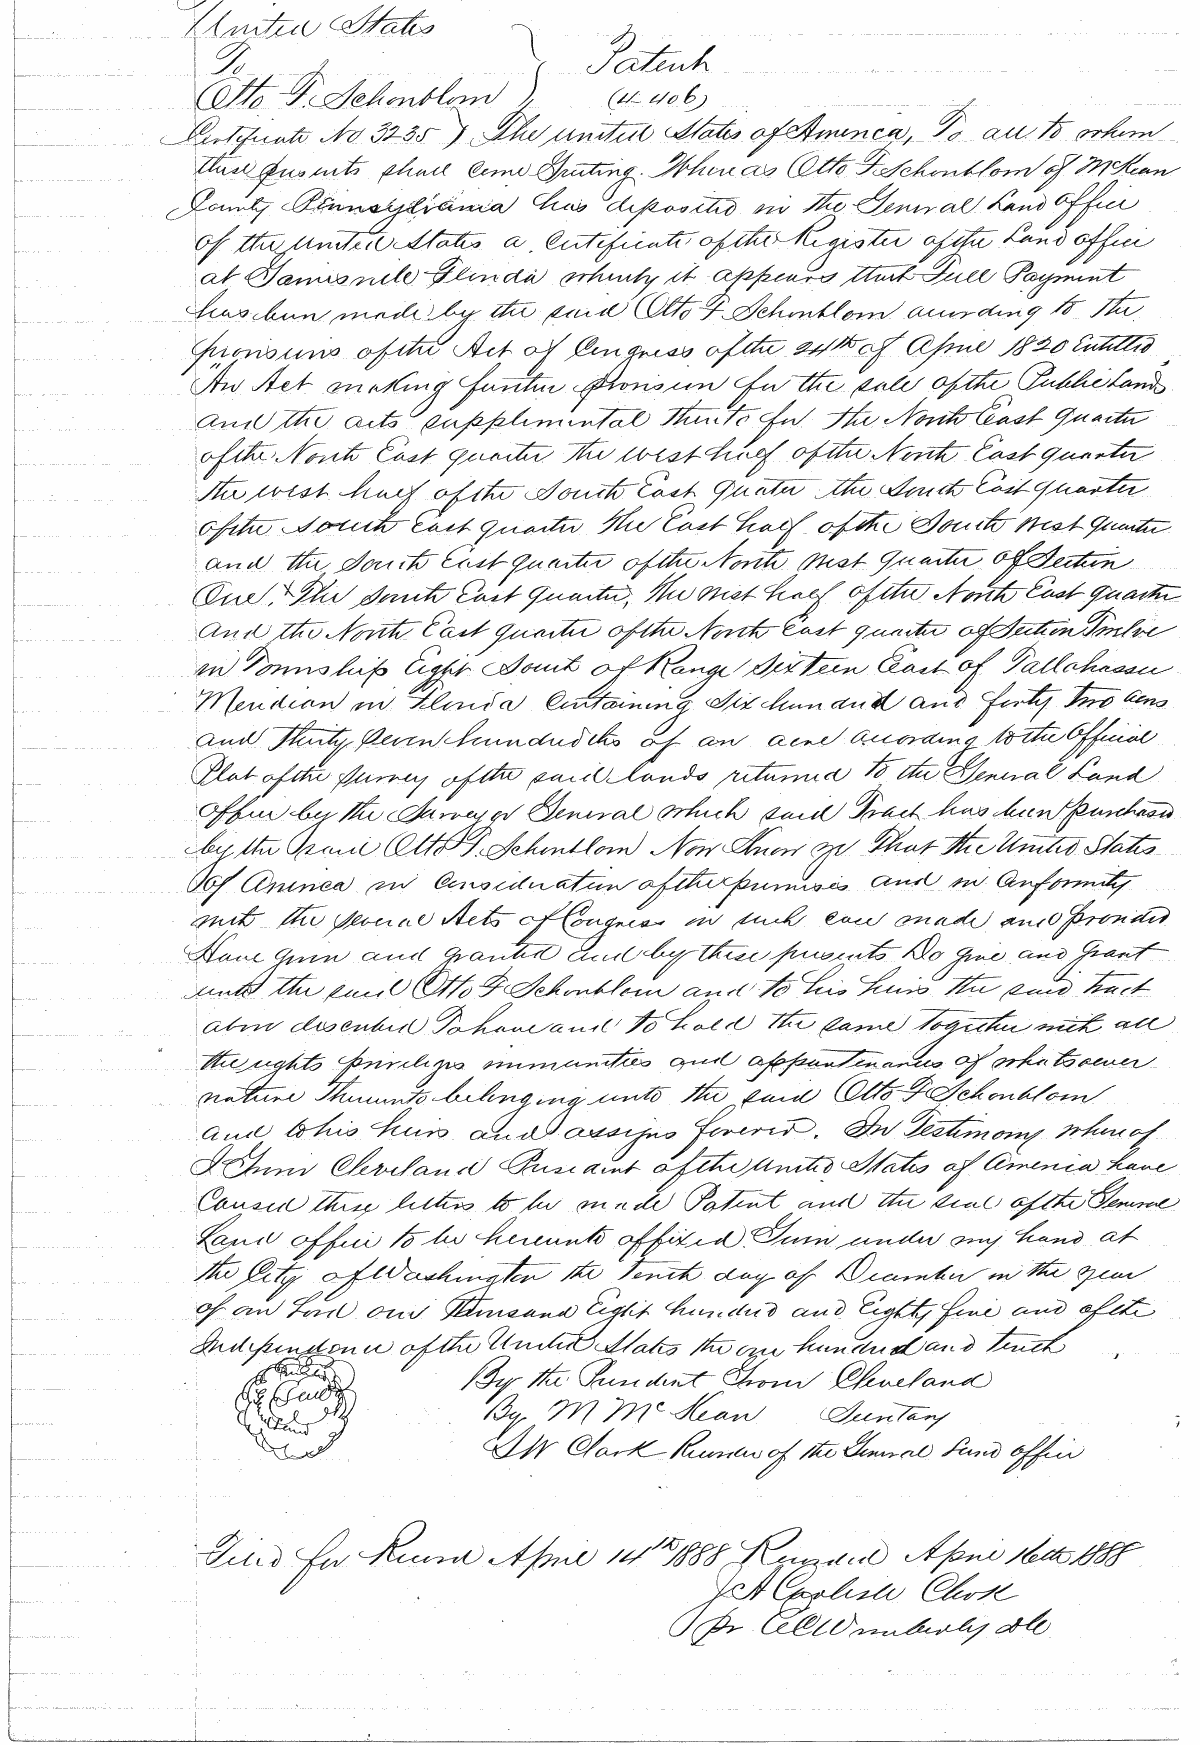 United States
To Patent
Otto F. Schonblom (4-406)
Certificate No 3235 } The United States of America, To all to whom
these presents shall come Greeting. Whereas Otto F Schonblom of McKean
County Pennsylvania has deposited in the General Land Office
of the United States a Certificate of the Register of the Land office
at Gainesville Florida whereby it appears that Full Payment
has been made by the said Otto F. Schonblom according to the
provisions of the Act of Congress of the 24th of April 1820 Entitled
"An Act making further provision for the sale of the Public Lands
and the acts supplimental thereto for the North East Quarter
of the North East quarter the west half of the North East quarter
the west half of the South East Quater the South East Quarter
of the South East quarter the East half of the South West Quarter
and the South East Quarter of the North West Quarter of Section
One. + The South East Quarter, the West half of the North East quarter
and the North East quarter of the North East quarter of Section Twelve
in Township Eight South of Range Sixteen East of Tallahassee
Meridian in Florida Containing Six hundred and forty two acres
and Thirty Seven hundredths of an acre according to the Official
Plat of the Survey of the said lands returned to the General Land
office by the Surveyor General which said Tract has been purchased
by the said Otto F. Schonblom Now Know ye That the United States
of America in Consideration of the premises and in Conformity
with the Several Acts of Congress in such case made and provided
Have given and granted and by these presents Do Give and Grant
unto the said Otto F Schonblom and to his heirs the said tract
above described To have and to hold the same together with all
the rights priviliges immunities and appurtenances of whatsoever
nature Thereunto belonging unto the said Otto F Schonblom
and to his heirs and assigns forever. In Testimony whereof
I Grover Cleveland President of the United States of America have
Caused these letters to be made Patent and the seal of the General
Land office to be hereunto affixed. Given under my hand at
the City of Washington the Tenth day of December in the year
of our Lord one Thousand Eight hundred and Eighty five and of the
Independence of the United States the one hundred and tenth
By the President Grover Cleveland
By M McKean Secretary
S W Clark Recorder of the General Land office
Filed for Record April 14th 1888 Recorded April 16th 1888
J A Carlisle Clerk
Pr Wimberly DC